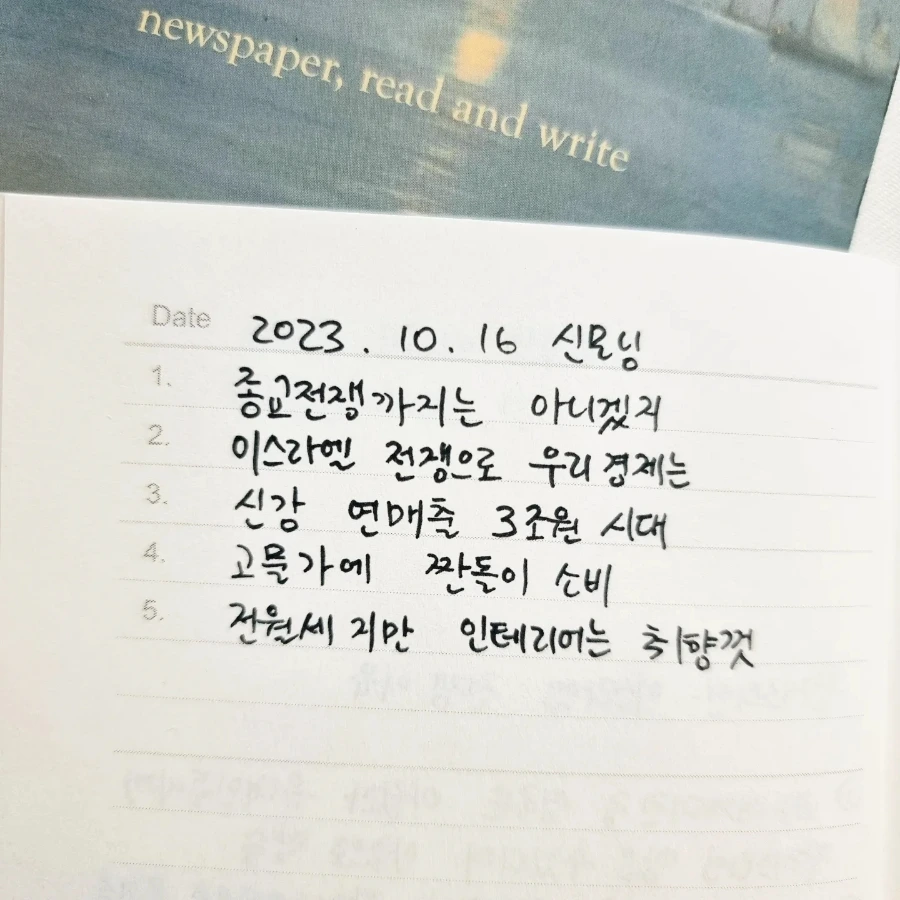 newspaper, read and write
Date 2023. 10. 16 신모닝
1. 종교전쟁까지는 아니겠지
2. 이스라엘 전쟁으로 우리 경제는
3. 신강 연매출 3조원 시대
4. 고물가에 짠돌이 소비
5. 전월세지만 인테리어는 취향껏